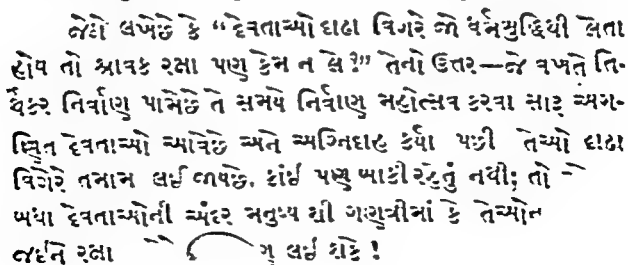 જેઠો લખેછે કે “દેવતાઓ દાઢા વિગરે જો ધર્મબુદ્ધિથી લેતા
હોય તો શ્રાવક રક્ષા પણ કેમ ન લે?” તેનો ઉત્તર—જે વખતે તિ-
ર્થંકર નિર્વાણ પામેછે તે સમયે નિર્વાણ મહોત્સવ કરવા સારૂ અગ-
ણિત દેવતાઓ આવેછે અને અગ્નિદાહ કર્યા પછી તેઓ દાઢા
વિગેરે તમામ લઈ જાયછે. કાંઈ પણ બાકી રહેતું નથી; તો
બધા દેવતાઓની અંદર મનુષ્ય શી ગણત્રીમાં કે તેઓન
જઈને રક્ષા લઈ શકે!